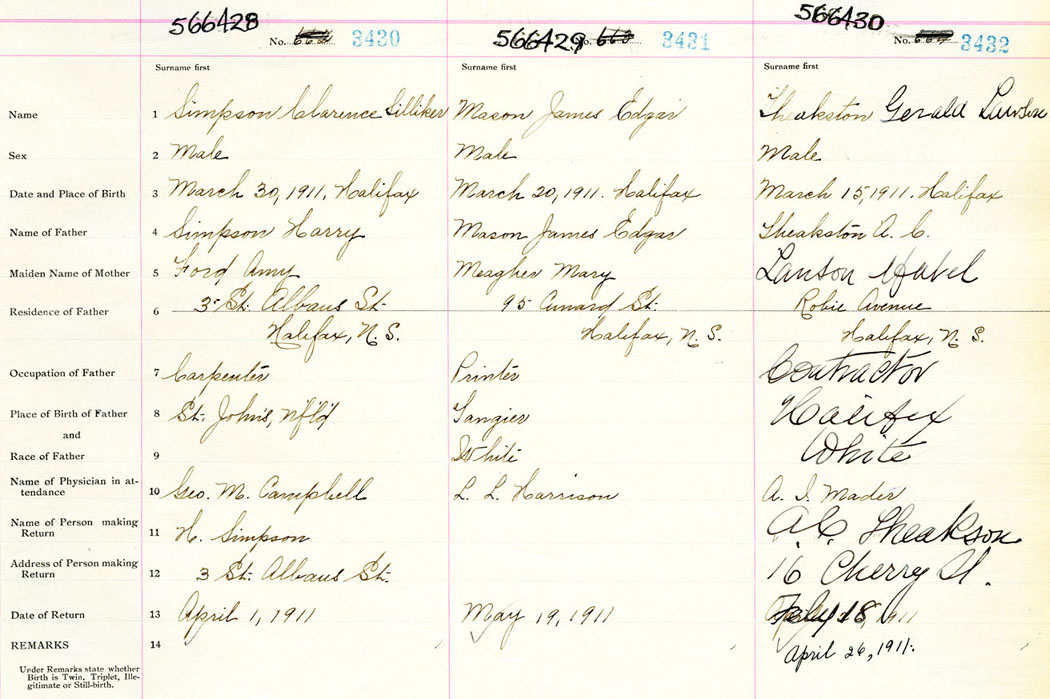 566428 566429 566430
No. 3430 No. 663 3431 No. 3432
Surname first Surname first Surname first
Name 1 Simpson Clarence Silliker Mason James Edgar Theakston Gerald Lawson
Sex 2 Male Male Male
Date and Place of Birth 3 March 30, 1911, Halifax March 20, 1911. Halifax March 15, 1911. Halifax
Name of Father 4 Simpson Harry Mason James Edgar Theakston A. C.
Maiden Name of Mother 5 Ford Amy Meagher Mary Lanson Mabel
3 St. Albans St. 95 Cunard St. Robie Avenue
Residence of Father 6
Halifax, N. S. Halifax, N. S. Halifax, N. S.
Occupation of Father 7 Carpenter Printer Contractor
Place of Birth of Father 8 St. John's, Nfld Tangier Halifax
and
Race of Father 9 White White
Name of Physician in at-
tendance 10 Geo. M. Campbell L. L. Harrison A. I. Mader
Name of Person making
Return 11 H. Simpson A. C. Theakson
Address of Person making
Return 12 3 St. Albans St. 16 Cherry St.
Date of Return 13 April 1, 1911 May 19, 1911 18, 1911
REMARKS 14 April 26, 1911.
Under Remarks state whether
Birth is Twin, Triplet, Ille-
gitimate or Still-birth.